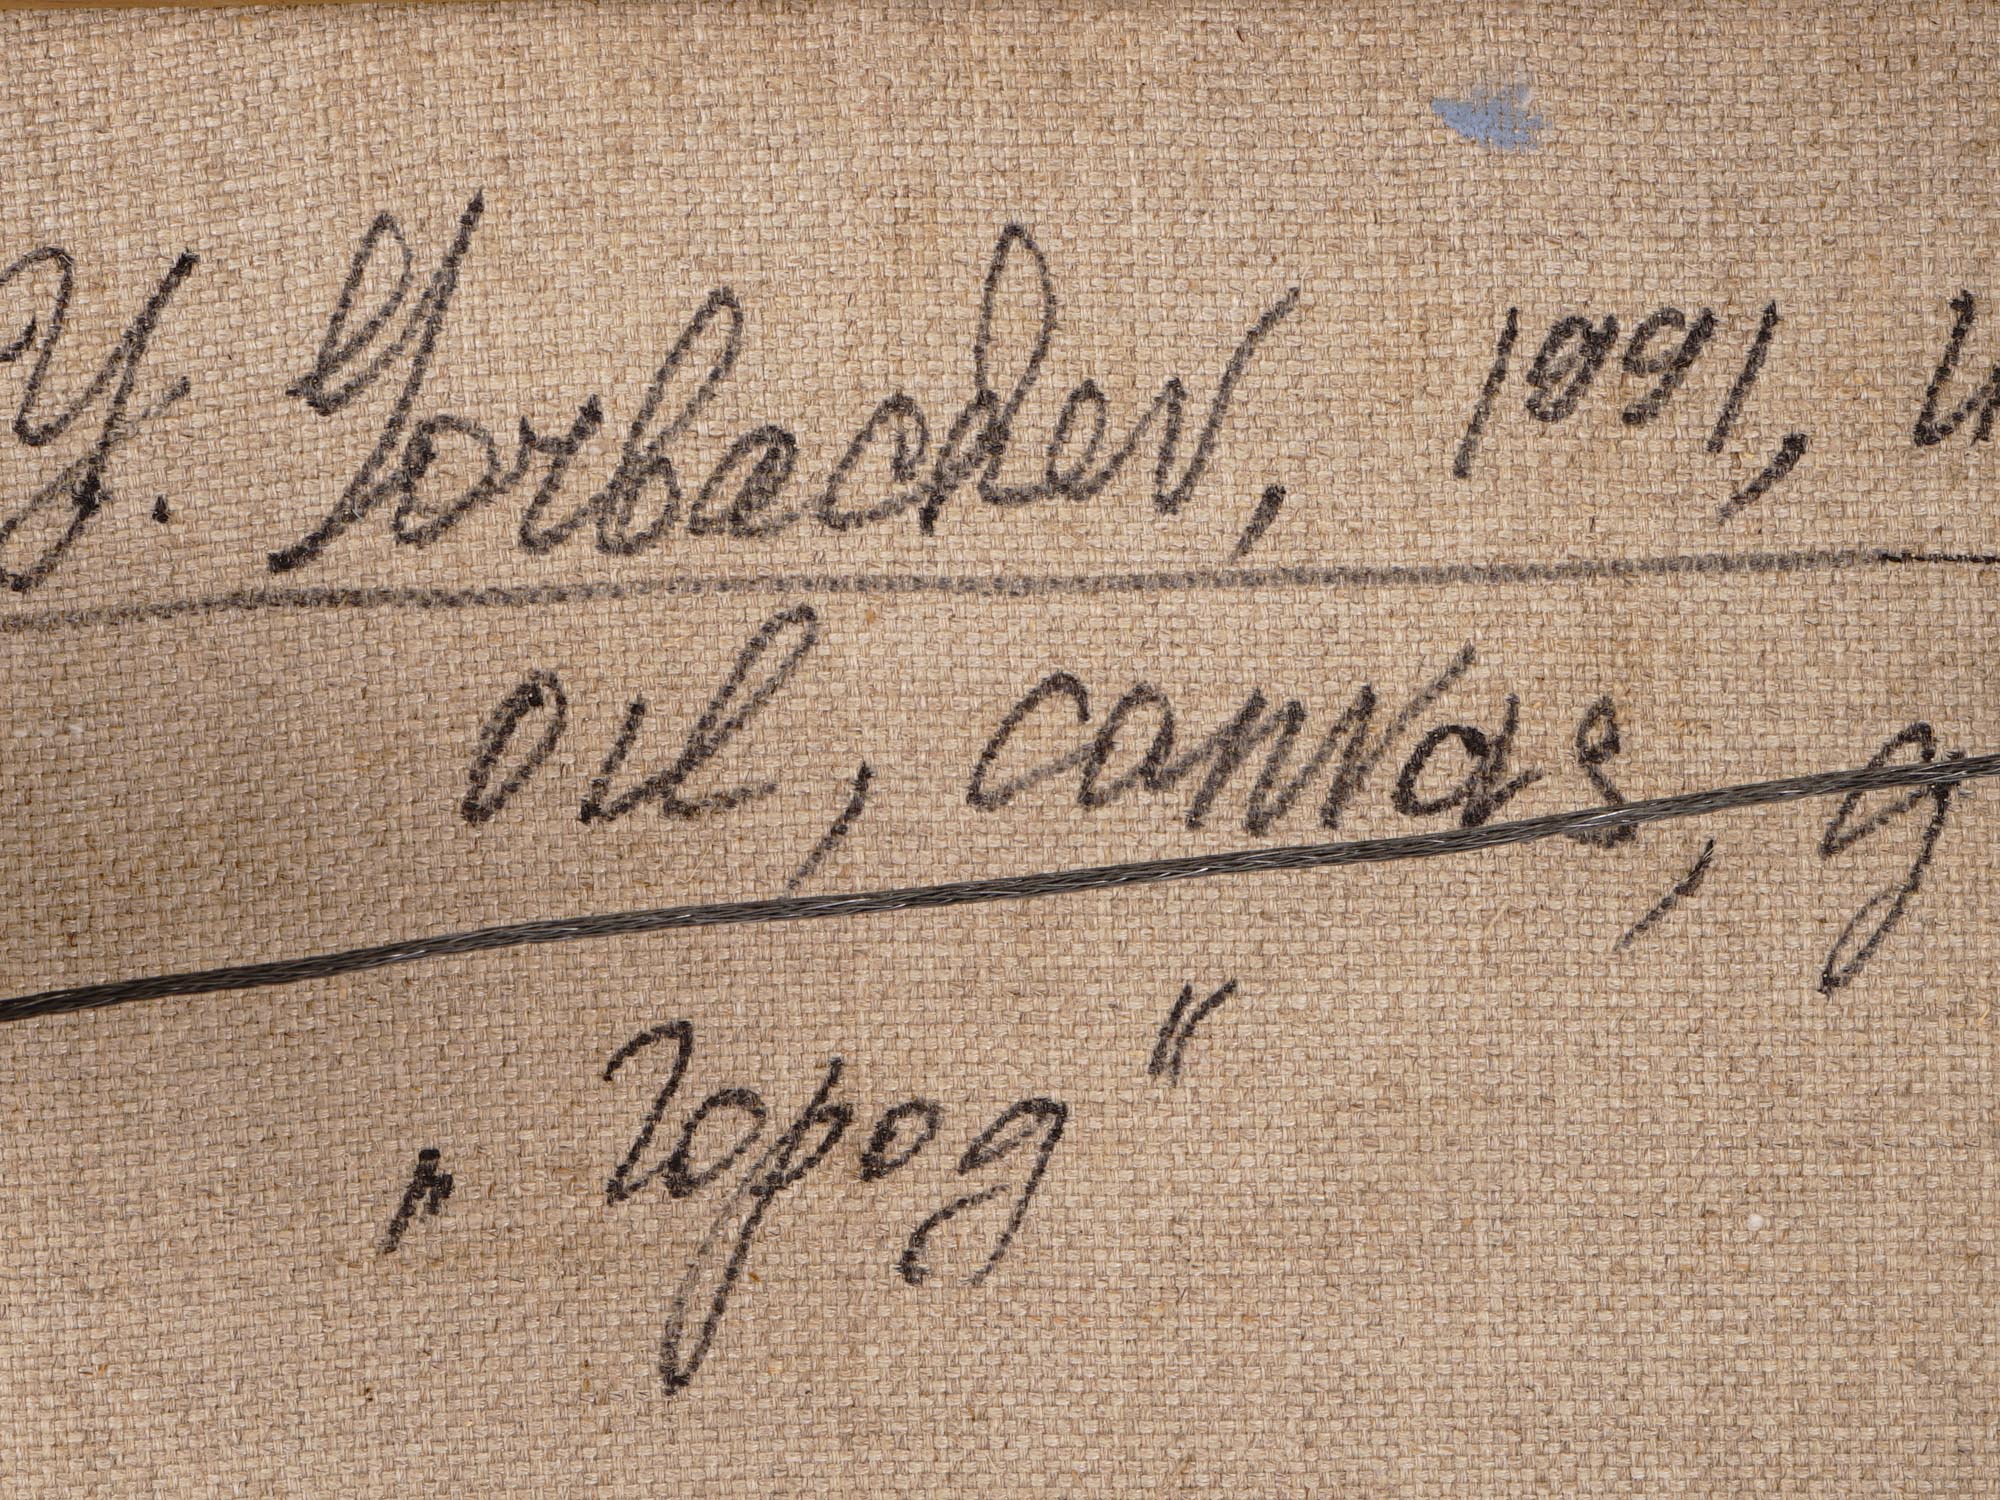 Y. Gorbachev, 1991,
oil, canvas, g
„город“